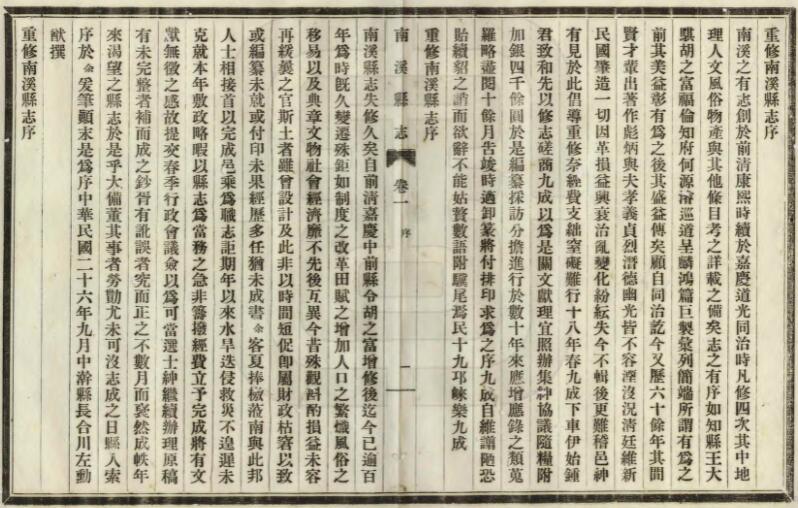 重修南溪縣志序
南溪之有志創於前清康熙時續於嘉慶道光同治時凡修四次其中地
理人文風俗物產與其他條目考之詳載之備矣志之有序如知縣王大
騏胡之富福倫知府何源濬巡道呈麟鴻篇巨製彙列簡端所謂有爲之
前其美益彰有爲之後其盛益傳矣顧自同治訖今又歷六十餘年其間
賢才輩出著作彪炳與夫孝義貞烈潛德幽光皆不容湮沒況清廷維新
民國肇造一切因革損益興衰治亂變化紛紜失今不輯後更難稽邑紳
有見於此倡導重修奈經費支絀窒礙難行十八年春九成下車伊始鍾
君致和先以修志磋商九成以爲是關文獻理宜照辦集紳協議隨糧附
加銀四千餘圓於是編纂採訪分擔進行於數十年來應增應錄之類蒐
羅略盡閱十餘月告竣時適卸篆將付排印求爲之序九成自維譾陋恐
貽續貂之誚而欲辭不能姑贅數語附驥尾焉民十九邛崍樂九成
重修南溪縣志序
南溪縣志
卷一
序
一
南溪縣志失修久矣自前清嘉慶中前縣令胡之富增修後迄今已逾百
年爲時旣久變遷殊鉅如制度之改革田賦之增加人口之繁熾風俗之
移易以及典章文物社會經濟靡不先後互異今昔殊觀斟酌損益未容
再緩曩之官斯土者雖曾設計及此非以時間短促卽屬財政枯窘以致
或編纂未就或付印未果經歷多任猶未成書余客夏捧檄蒞南與此邦
人士相接首以完成邑乘爲職志詎期年以來水旱迭侵救災不遑遲未
克就本年敷政略暇以縣志爲當務之急非籌撥經費立予完成將有文
獻無徵之感故提交春季行政會議僉以爲可當選士紳繼續辦理原稿
有未完整者補而成之鈔胥有訛誤者究而正之不數月而裒然成帙年
來渴望之縣志於是乎大備董其事者勞勩尤未可沒志成之日縣人索
序於余爰筆顚末是爲序中華民國二十六年九月中澣縣長合川左勳
猷撰
重修南溪縣志序